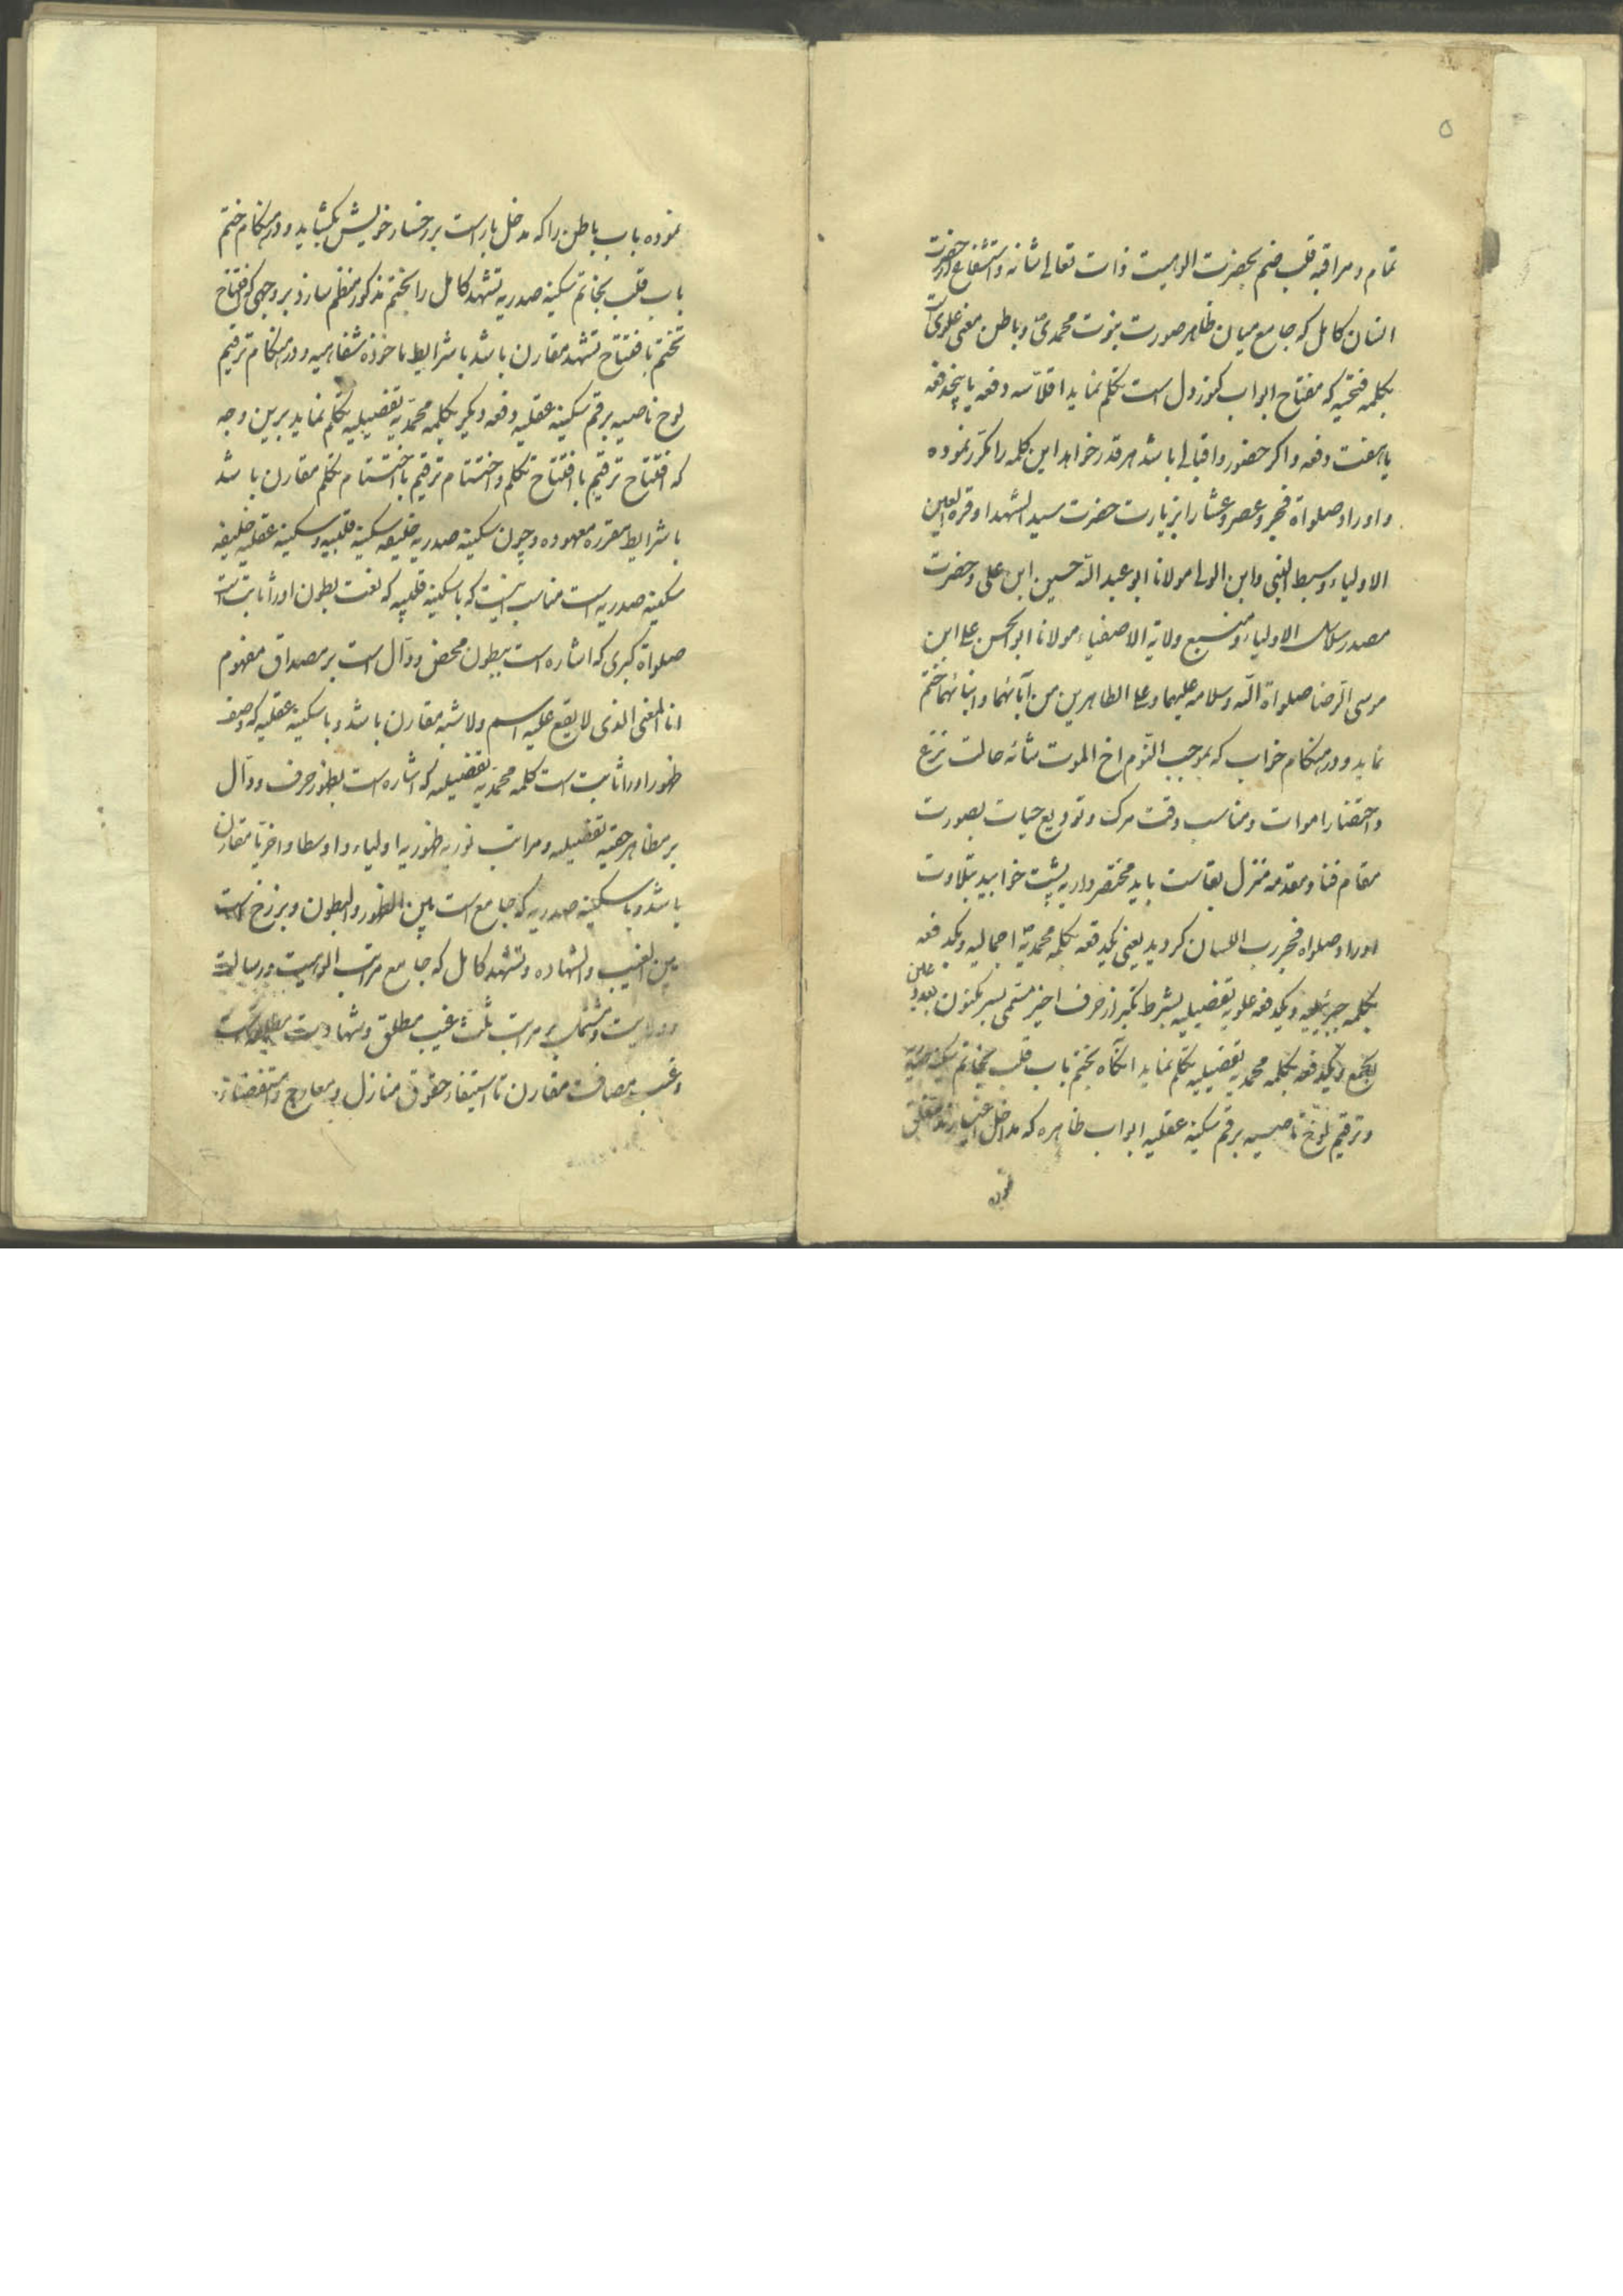 ۵
تمام و مراقبه قلب فهم بحضرت الوهیت ذات تعالی شانه و استشفاع از حضرت
انسان کامل که جامع میان ظاهر صورت نبوت محمدی و باطن معنی علوی
بکلمه فتحیه که مفتاح ابواب کنوز دل است تکلم نماید اقلا سه دفعه یا پنجدفعه
یا هفت دفعه و اکر حضور و اقبالی باشد هر قدر خواهد این کلمه را مکرر نموده
و اوراد صلواة فجر و عصر و عشا را بزیارت حضرت سید الشهدا و قرة العین
الاولیاء و سبط النبی و ابن الولی مولانا ابو عبد الله حسین ابن علی و حضرت
مصدر سلاسل الاولیاء و منبع ولایة الاصفیاء مولانا ابو الحسن علی ابن
موسی الرضا صلواة الله و سلامه علیهما و علی الطاهرین من آبائهما و ابنائهما ختم
نماید و در هنکام خواب که بموجب النوم اخ الموت مثابه حالت نزع
و احتضار اموات و مناسب وقت مرک و تودیع حیات بصورت
مقام فنا و مقدمه منزل بقاست باید محتضر وار به پشت خوابید بتلاوت
اوراد صلواة فجر رطب اللسان کردید یعنی یکدفعه بکلمه محمدیه اجمالیه و یکدفعه
بکلمه جبرئیلیه و یکدفعه علویه تفضیلیه بشرط تکبر از حرف اخیر مسمی بسر مکنون بعدد علی
بجمع و یکدفعه بکلمه محمدیه تفضیلیه تکلم نماید انکاه بختم باب قلب بخاتم سکینه صدریه
و ترقیم لوح ناصیه برقم سکینه عقلیه ابواب ظاهره که مداخل اغیارند مغلق
نموده
نموده باب باطن را که مدخل یار است بر رخسار خویش بکشاید و در هنکام ختم
باب قلب بخاتم سکینه صدریه تشهد کامل را بختم مذکور منظم سازد بر وجهی که افتتاح
تختم با افتتاح تشهد مقارن باشد باشرایط ماخوذه شفاهیه و در هنکام ترقیم
لوح ناصیه برقم سکینه عقلیه دفعه دیکر بکلمه محمدیه تفضیلیه تکلم نماید برین وجه
که افتتاح ترقیم با افتتاح تکلم و اختتام ترقیم با اختتام تکلم مقارن باشد
باشرایط مقرره معهوده و چون سکینه صدریه خلیفه سکینه قلبیه و سکینه عقلیه خلیفه
سکینه صدریه است مناسب انست که با سکینه قلبیه که نعت بطون او را ثابت است
صلواة کبری که اشاره است ببطون محض و دال است بر مصداق مفهوم
انا المعنی الذی لا یقع علیه اسم و لا شبه مقارن باشد و با سکینه عقلیه که وصف
ظهور او را ثابت است کلمه محمدیه تفضیلیه که اشاره است بظهور صرف و دال
بر مظاهر حقیه تفضیلیه و مراتب نوریه ظهوریه اولیاء و اوسطا و اخریا مقارن
باشد و با سکینه صدریه که جامع است بین الظهور و البطون و برزخ است
بین الغیب و الشهاده و تشهد کامل که جامع مراتب الوهیت و رسالت
و ولایت و مشتمل بر مراتب ثلث غیب مطلق و شهادت مطلق است
و غیب مضاف مقارن تا استیفاء حقوق منازل و معارج و استفضا